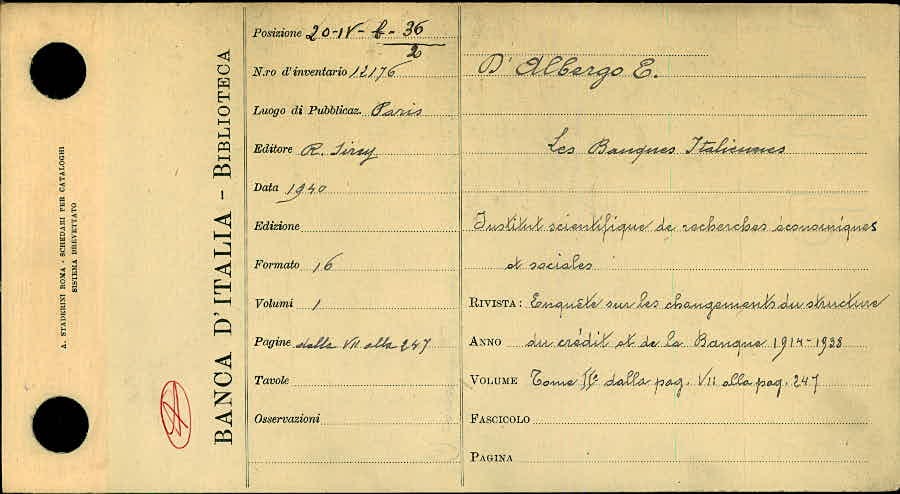 A. STADERINI ROMA - SCHEDARI PER CATALOGHI
SISTEMA BREVETTATO
BANCA D'ITALIA - BIBLIOTECA
Posizione 20-IV-f-36/2
N.ro d'inventario 12176
Luogo di Pubblicaz. Paris
Editore R. Sirey
Data 1940
Edizione
Formato 16
Volumi 1
Pagine dalla VII alla 247
Tavole
Osservazioni
D'Albergo E.
Les Banques Italiennes
Institut scientifique de recherches économiques
et sociales
RIVISTA: Enquête sur les changements du structure
ANNO du crédit et de la Banque 1914-1938
VOLUME Tome IIe dalla pag. VII alla pag. 247
FASCICOLO
PAGINA